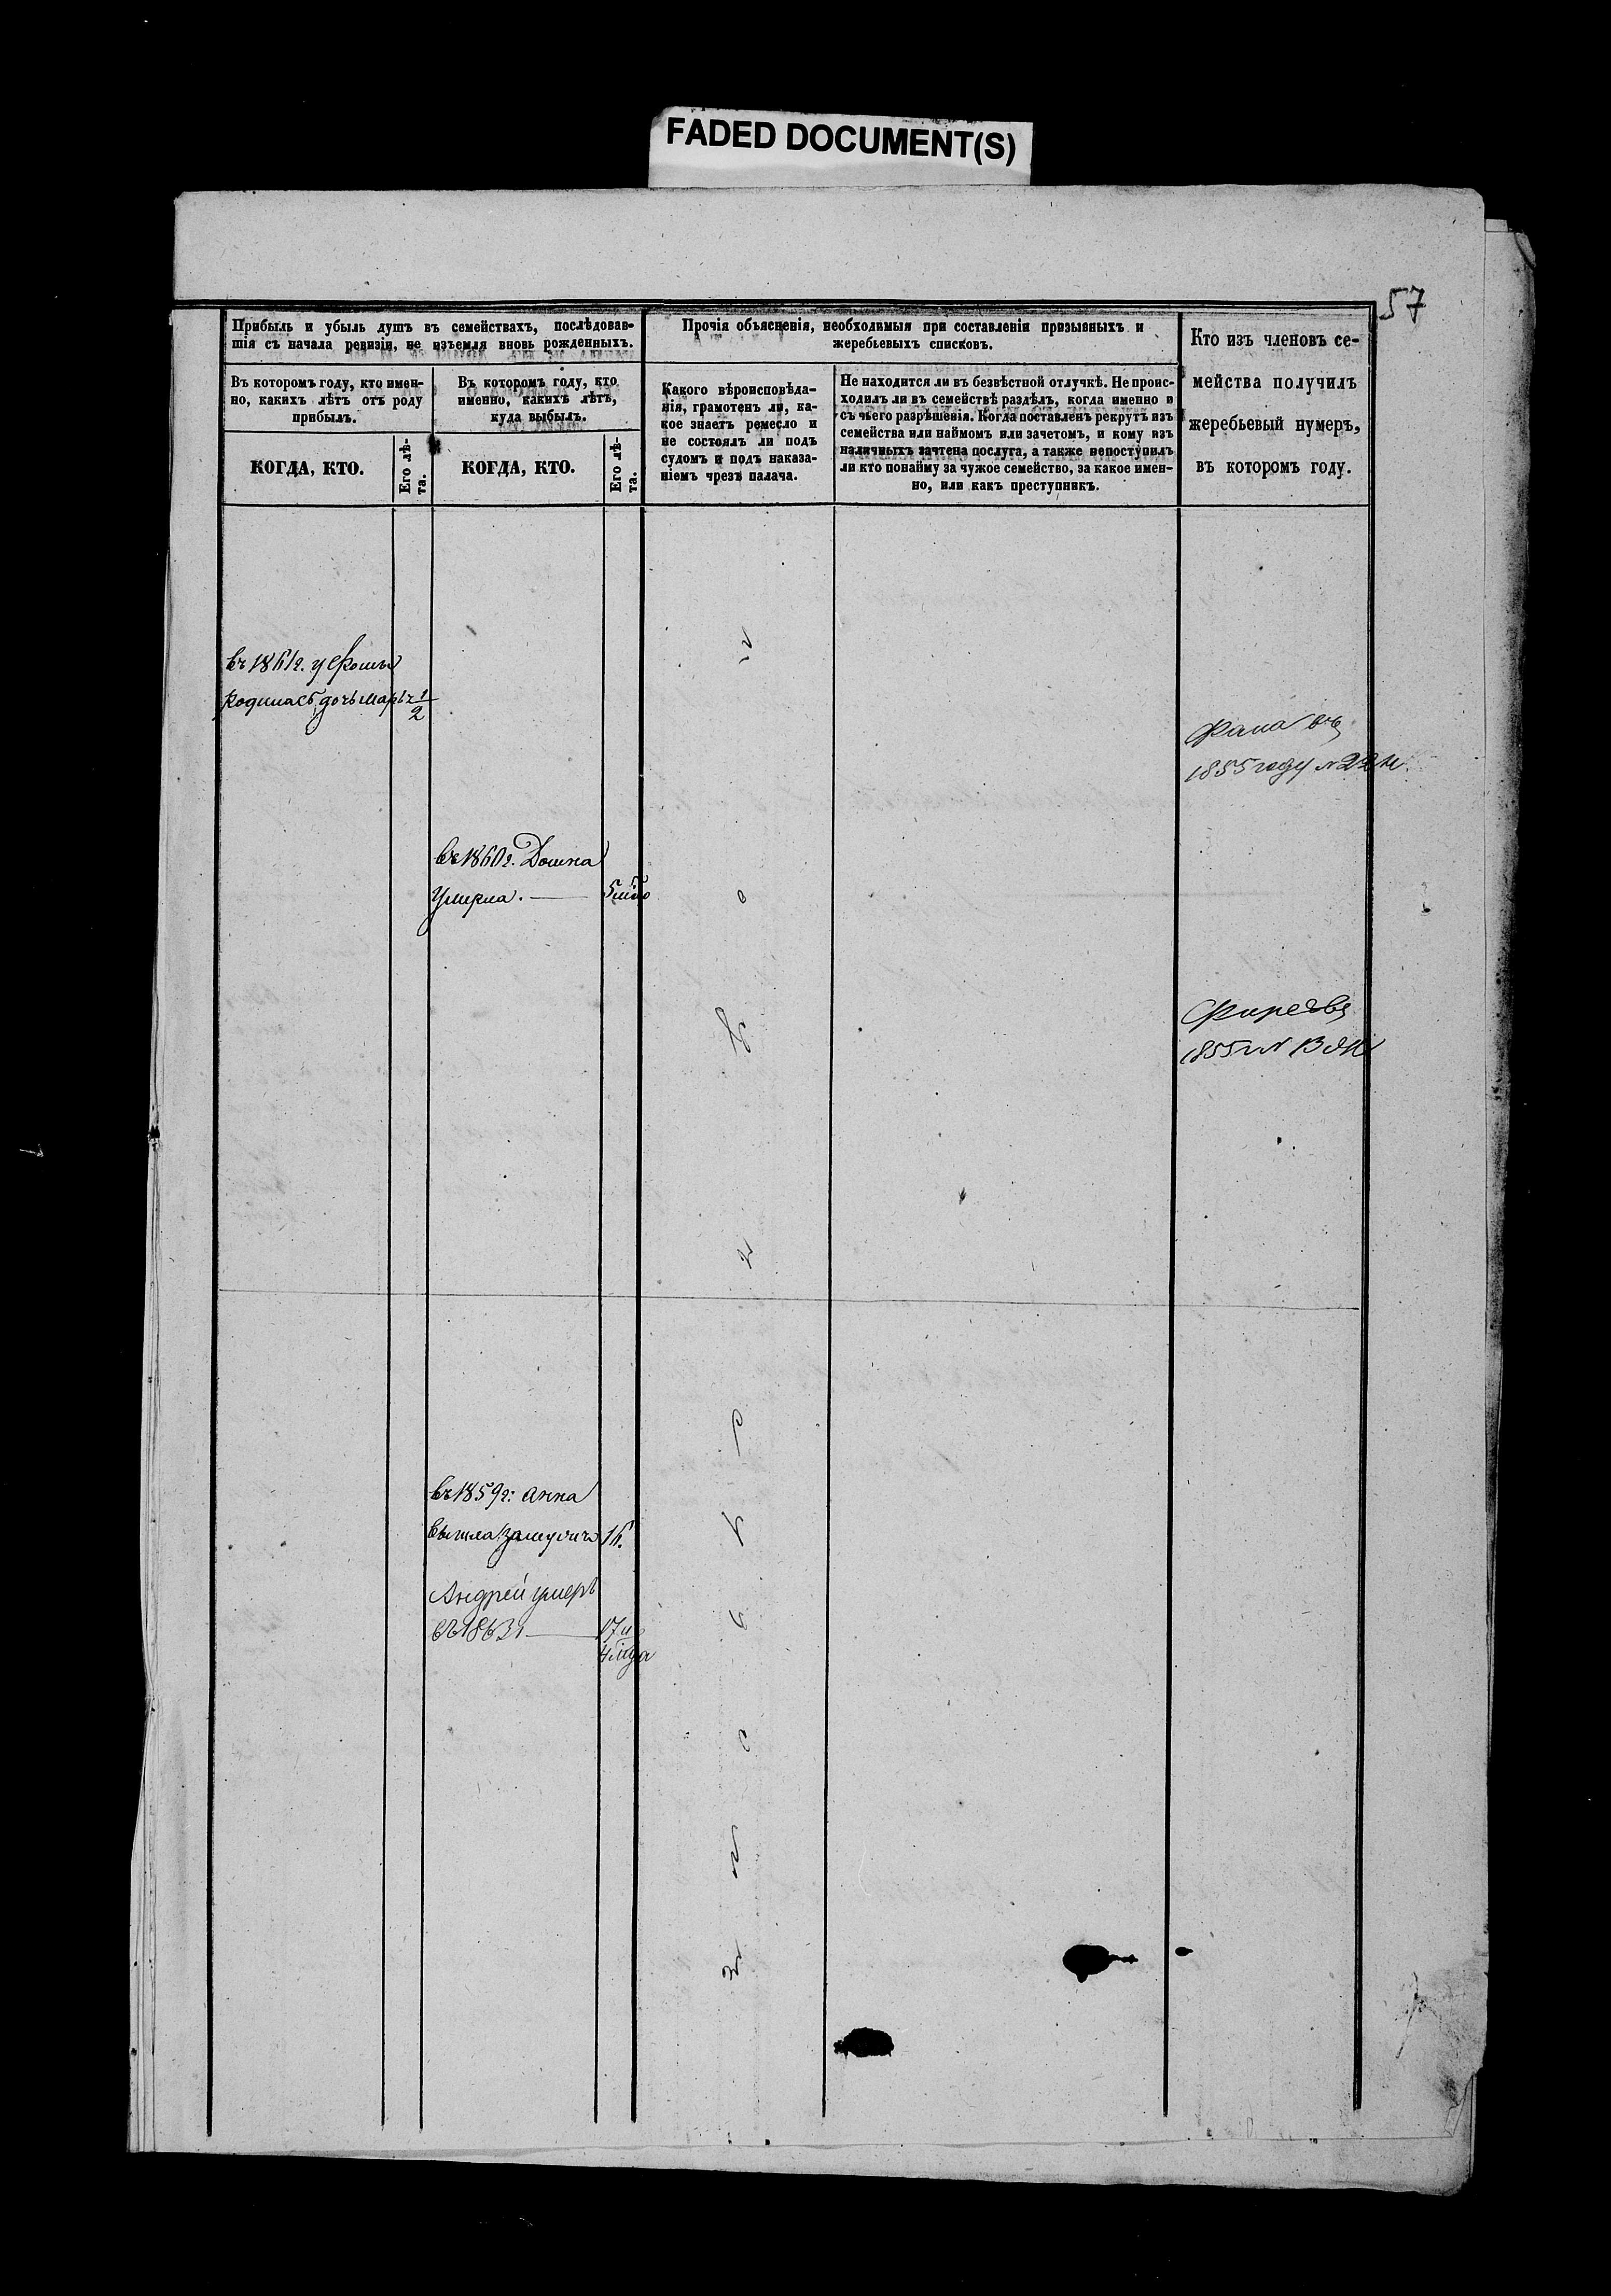 FADED DOCUMENT(S)
57
Прибыль и убыль душъ въ семействахъ, послѣдовав-
шія съ начала ревизіи, не изъемля вновь рожденныхъ.
Въ которомъ году, кто имен-
но, какихъ лѣтъ отъ роду
прибылъ.
Въ которомъ году, кто
именно, какихъ лѣтъ,
куда выбылъ.
КОГДА, КТО.
Его лѣ-
та.
КОГДА, КТО.
Его лѣ-
та.
Прочія объясненія, необходимыя при составленіи призывныхъ и
жеребьевыхъ списковъ.
Какого вѣроисповѣда-
нія, грамотенъ ли, ка-
кое знаетъ ремесло и
не состоялъ ли подъ
судомъ и подъ наказа-
ніемъ чрезъ палача.
Не находится ли въ безвѣстной отлучкѣ. Не проис-
ходилъ ли въ семействѣ раздѣлъ, когда именно и
съ чьего разрѣшенія. Когда поставленъ рекрутъ изъ
семейства или наймомъ или зачетомъ, и кому изъ
наличныхъ зачтена послуга, а также непоступилъ
ли кто понайму за чужое семейство, за какое имен-
но, или какъ преступникъ.
Кто изъ членовъ се-
мейства получилъ
жеребьевый нумеръ,
въ которомъ году.
въ 1861г. у
родилась дочь 1/2
въ
1855 году №
въ 1860г. Домна
умерла. 5
1855 №
въ 1859г: Анна
вышла замужъ 16.
Андрей умеръ
въ 1863г 17 и